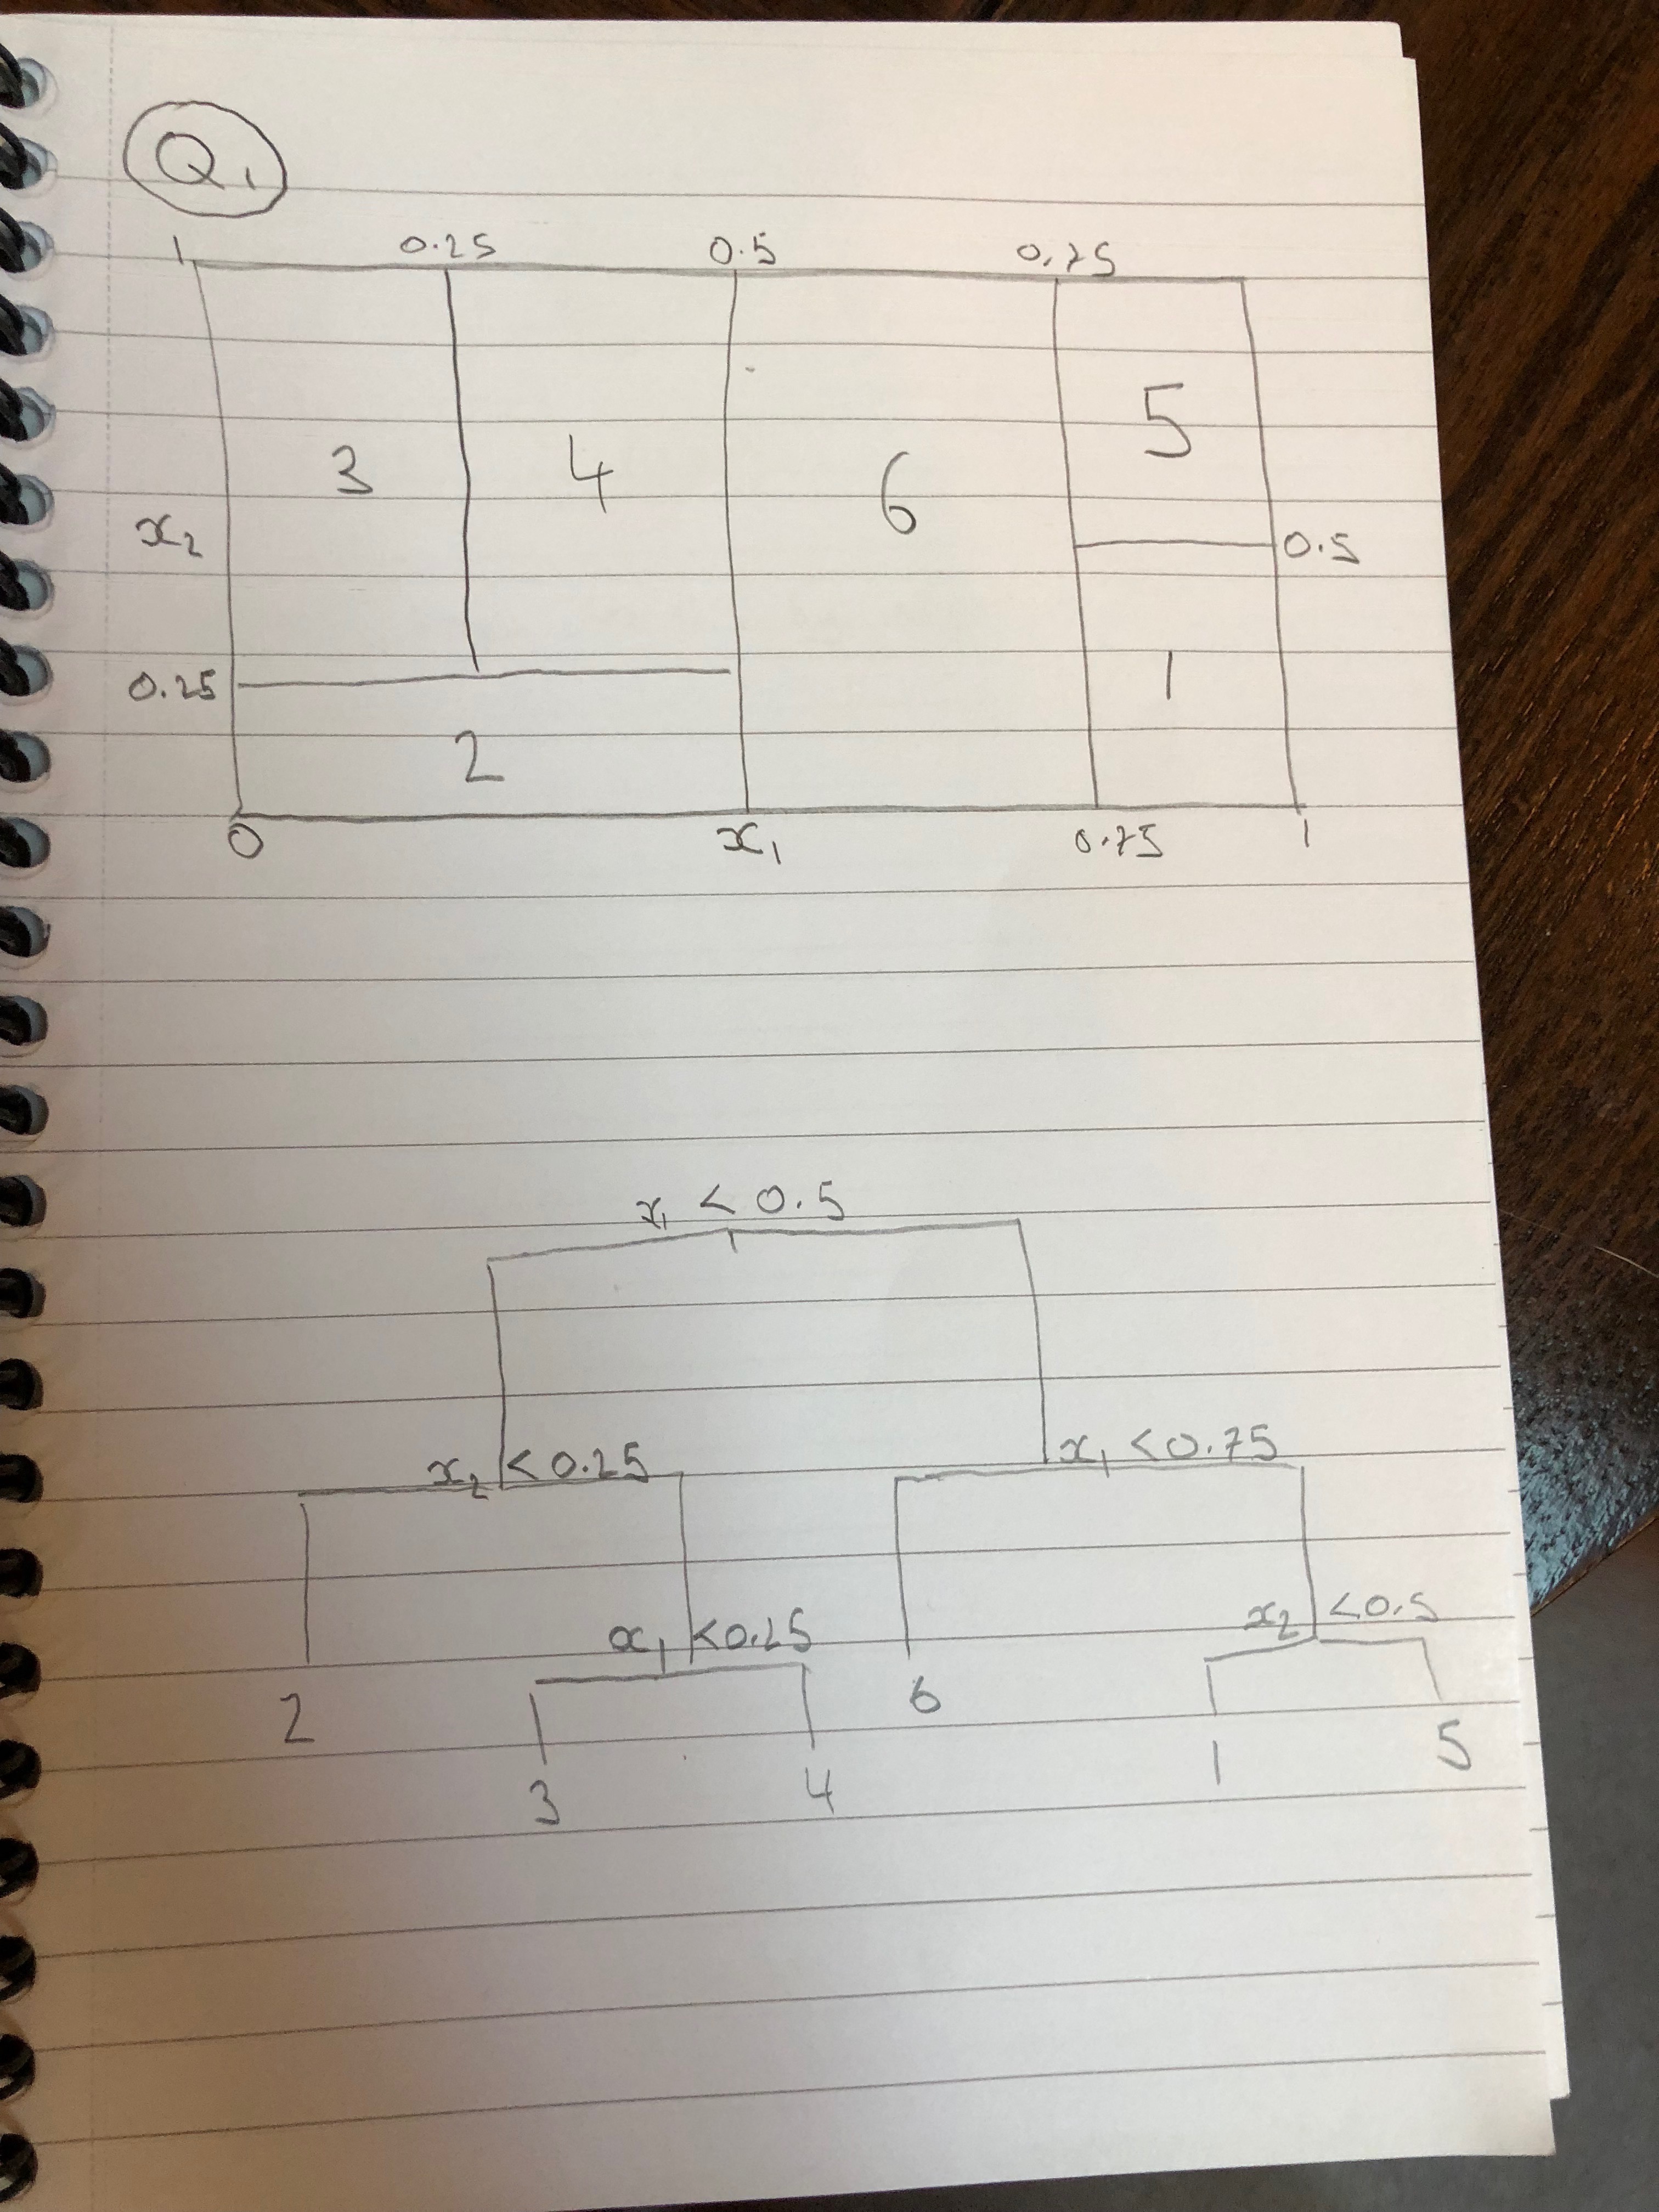 Q1
1 0.25 0.5 0.75
3 4 6 5
x2 0.5
0.25 1
2
0 x1 0.75 1
x1 < 0.5
x2 < 0.25 x1 < 0.75
x1 < 0.25 x2 < 0.5
2 6
3 4 1 5